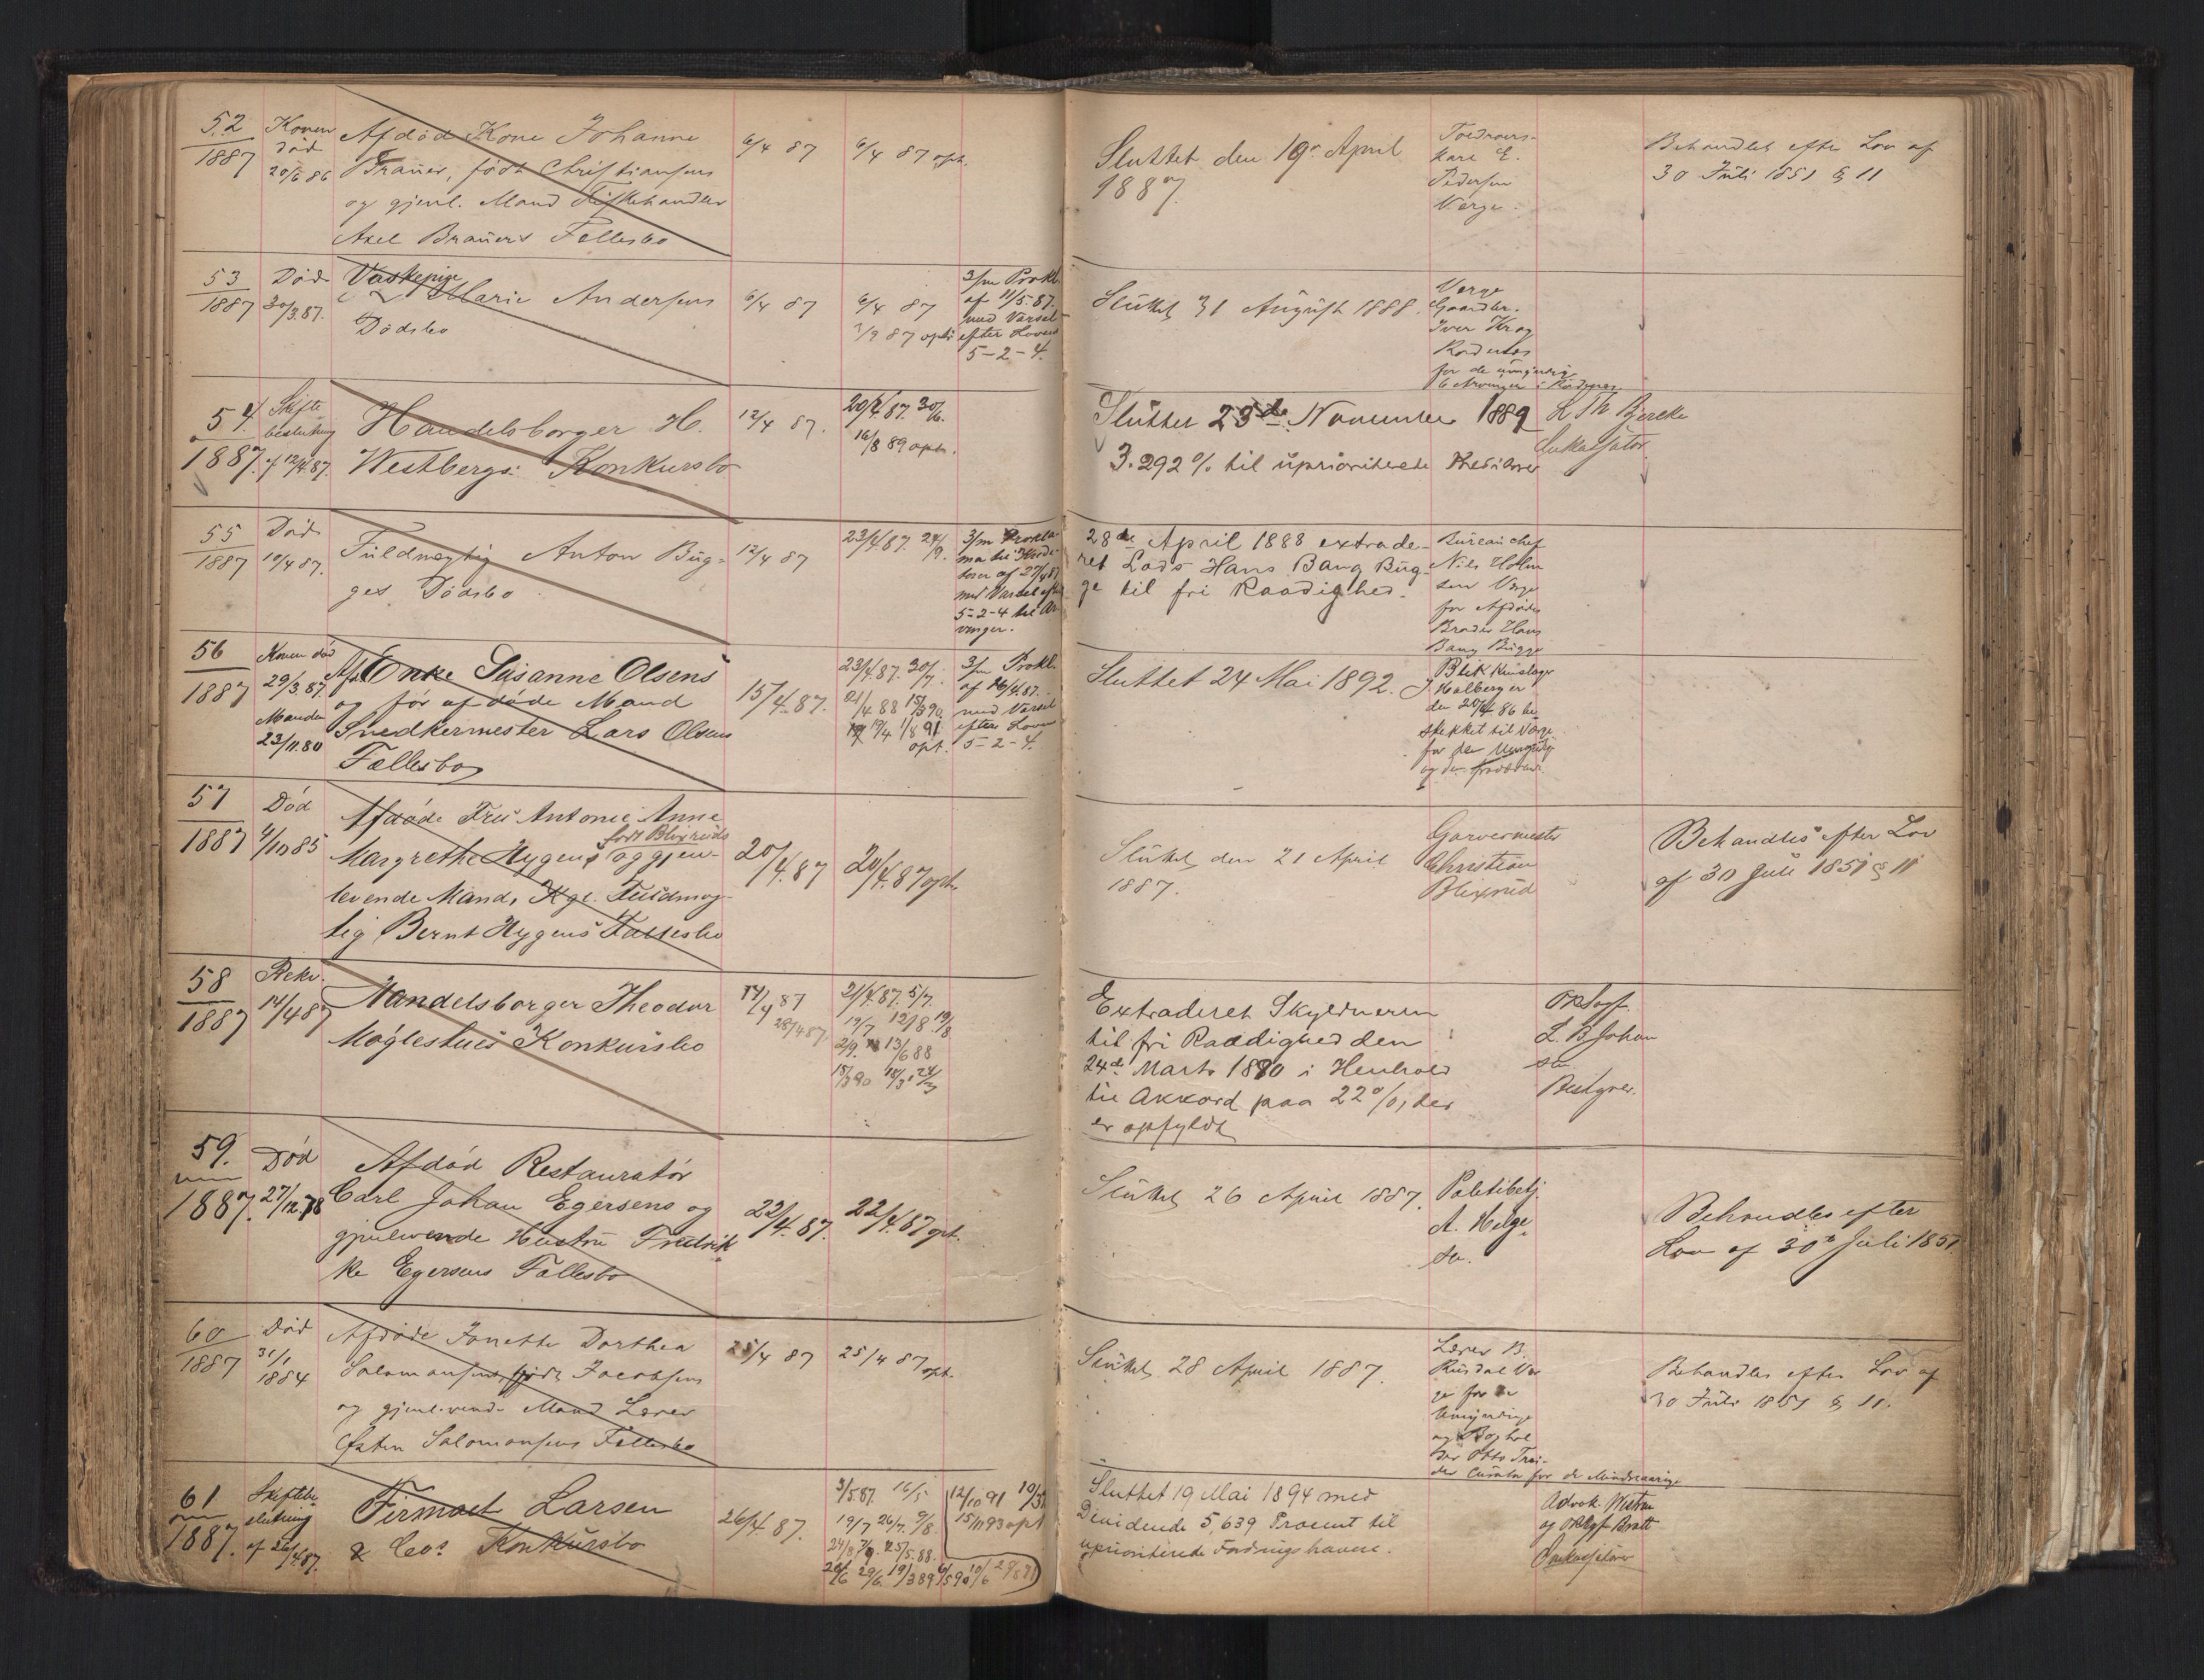 52
1887
Konen
død
20/6 86
Afdød Kone Johanne
Brauer, født Christiansens
og gjenl. Mand Fiskehandler
Axel Brauers Fellesbo
6/4 87
6/4 87 opt.
Sluttet den 19de April
1887.
Pedersen
Verge.
Behandlet efter Lov af
30 Juli 1851 § 11
53
1887
Død
30/3.87.
Vaskepige
Marie Andersens
Dødsbo
6/4 87
6/4 87
7/9 87 opt:
3/m Prokl.
af 11/5 87.
med Varsel
efter Lovens
5-2-4.
Sluttet 31 August 1888.
Verge
Gaardbr.
Iver Krog
for de umyndig
6 Arvinger i Rødenes.
54.
1887.
Skifte
beslutning
af 12/4.87.
Handelsborger H.
Westbergs: Konkursbo
12/4 87.
20/4.87. 30/6.
16/8 89 opt.
Sluttet 23de November 1889
3.292 % til uprioriterede Kreditorer
L Th. Bjercke
Inkassator
55
1887
Død
10/4 87.
Fuldmegtig Anton Bug-
ges Dødsbo
12/4 87
23/4.87. 24/9.
3/m Prokla-
ma til Kredi-
torer af 27/4 87
med Varsel efter
5-2-4 til Ar-
vinger.
28de April 1888 extrade-
ret Lods Hans Bang Bug-
ge til fri Raadighed.
Bureauchef
Nils Holm
sen Verge
for Afdødes
Broder Hans
Bang Bugge
56
1887
Konen død
29/3.87.
Manden
23/11.80
Afd Enke Susanne Olsens
og før afdøde Mand
Snedkermester Lars Olsens
Fællesbo
15/4.87.
23/4.87. 30/7.
21/4 88 15/3 90
19/4 1/8 91
opt.
3/m Prokl.
af 16/4.87.
med Varsel
efter Lovens
5-2-4.
Sluttet 24 Mai 1892.
Blikkenslager
J Halberger
den 20/4 86 be
skikket til Verge
for den Umyndige
57
1887
Død
4/10 85
Afdøde Fru Antonie Anne
født Blixruds
Margrethe Hygens og gjen-
levende Mand, Kgl. Fuldmæg-
tig Bernt Hygens Fællesbo
20/4.87
20/4.87 opt.
Sluttet den 21 April
1887.
Garvermester
Christian
Blixrud
Behandles efter Lov
af 30 Juli 1851 § 11
58
1887
Rekv.
14/4 87
Handelsborger Theodor
Møglestues Konkursbo
14/4 87
28/4 87
21/4.87. 5/7.
19/7 12/8 19/8
2/9. 13/6 88
15/3 90 18/3 24/3
Extraderet Skyldneren
til fri Raadighed den
24de Marts 1890 i Henhold
til Akkord paa 22%, der
er opfyldt
ORSagf.
L. B Johan
sen
Bestyrer.
59.
1887.
Død
27/12.78
Afdød Restauratør
Carl Johan Egersens og
gjenlevende Hustru Fredrik
ke Egersens Fællesbo
22/4.87.
22/4.87 opt.
Sluttet 26 April 1887.
Politibetj.
A. Helge
sen.
Behandles efter
Lov af 30te Juli 1851
60
1887
Død
31/1
1884
Afdøde Jonette Dorthea
Salomonsens, født Jacobsens
og gjenlevende Mand Lærer
Østen Salomonsens Fellesbo
25/4 87
25/4 87 opt.
Sluttet 28 April 1887.
Lærer B.
Rusdal Ver
ge for de
Umyndige
og Boghol
der Otto Trei-
der Curator for de Mindreaarige
Behandles efter Lov af
30 Juli 1851 § 11.
61
1887.
Skiftebe
slutning
af 26/4 87.
Firmaet Larsen
& Cos Konkursbo
26/4.87.
3/5.87. 16/5
19/7 26/7. 9/8.
12/10 91
15/11 93 opt
Sluttet 19 Mai 1894 med
Dividende 5,639 Procent til
uprioriterede Fordringshavere.
Advok. Westrum
og ORSagf Bratt
Inkassatorer